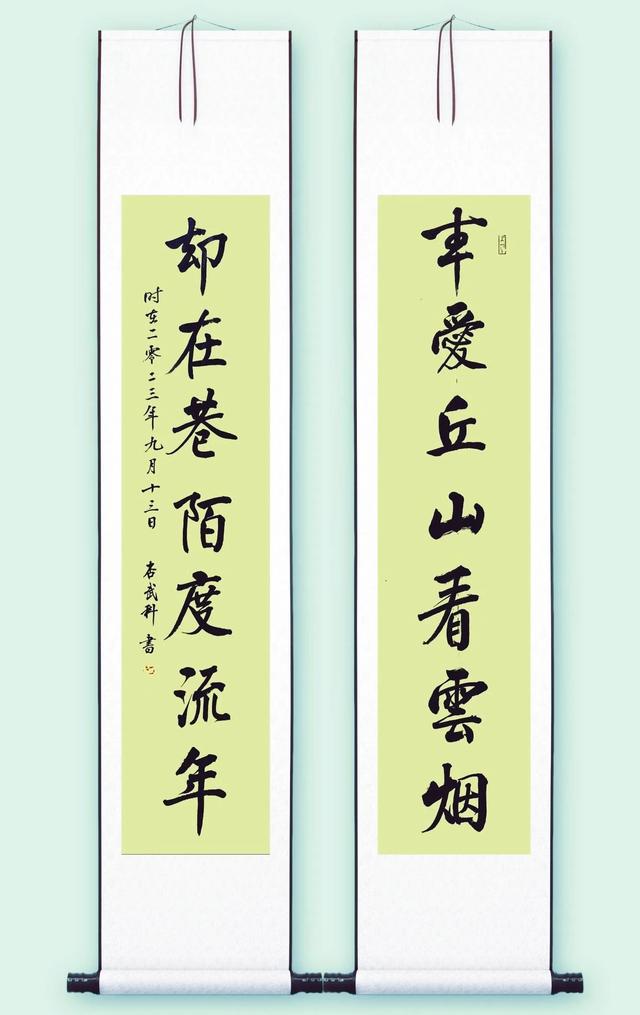 愛丘山看雲烟
却在巷陌度流年
时在二零二三年九月十三日 武科書